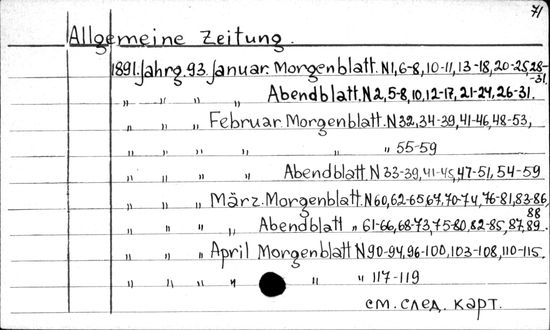 71
Allgemeine Zeitung.
1891. Jahrg. 93. Januar. Morgenblatt. N1,6-8,10-11,13-18,20-25,28-
-31.
„ „ „ „ Abendblatt. N2,5-8,10,12-17,21-24,26-31.
„ „ „ Februar. Morgenblatt. N32,34-39,41-46,48-53,
„ „ „ „ „ „ 55-59
„ „ „ „ Abendblatt N33-39,41-45,47-51,54-59
„ „ „ März. Morgenblatt. N60,62-65,67,70-74,76-81,83-86,
88
„ „ „ „ Abendblatt „ 61-66,68-73,75-80,82-85,87,89.
„ „ „ April Morgenblatt N90-94,96-100,103-108,110-115.
„ „ „ „ „ „ 117-119
см. след. карт.